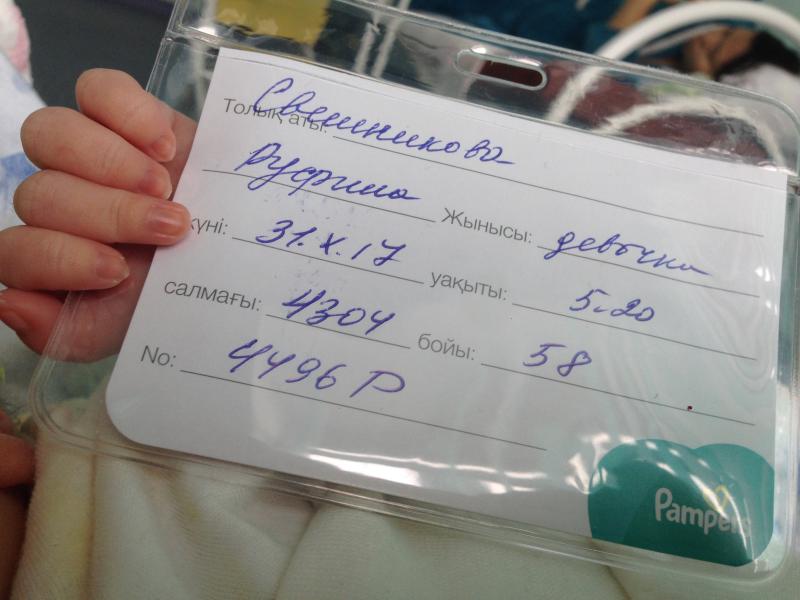 Толық аты: Свешникова
Руфина Жынысы: девочка
күні: 31.X.17 уақыты: 5.20
салмағы: 4304 бойы: 58
No: 4496 Р
Pampers